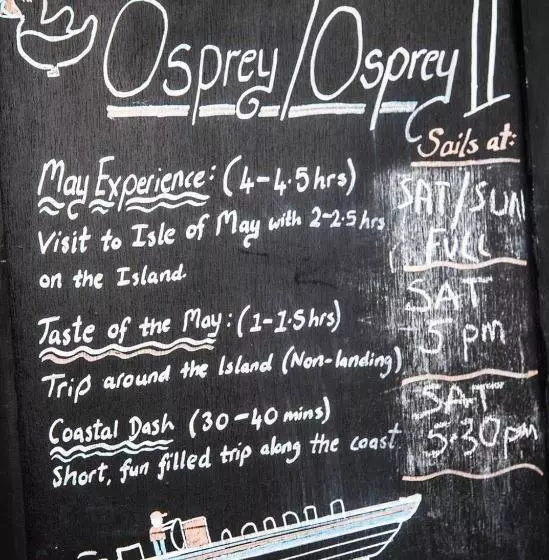 Osprey/Osprey II
Sails at:
May Experience: (4-4.5hrs)
Visit to Isle of May with 2-2.5hrs
on the Island.
SAT/SUN
FULL
Taste of the May: (1-1.5hrs)
Trip around the Island (Non-landing)
SAT
5pm
Coastal Dash (30-40 mins)
Short, fun filled trip along the coast
SAT
5.30pm